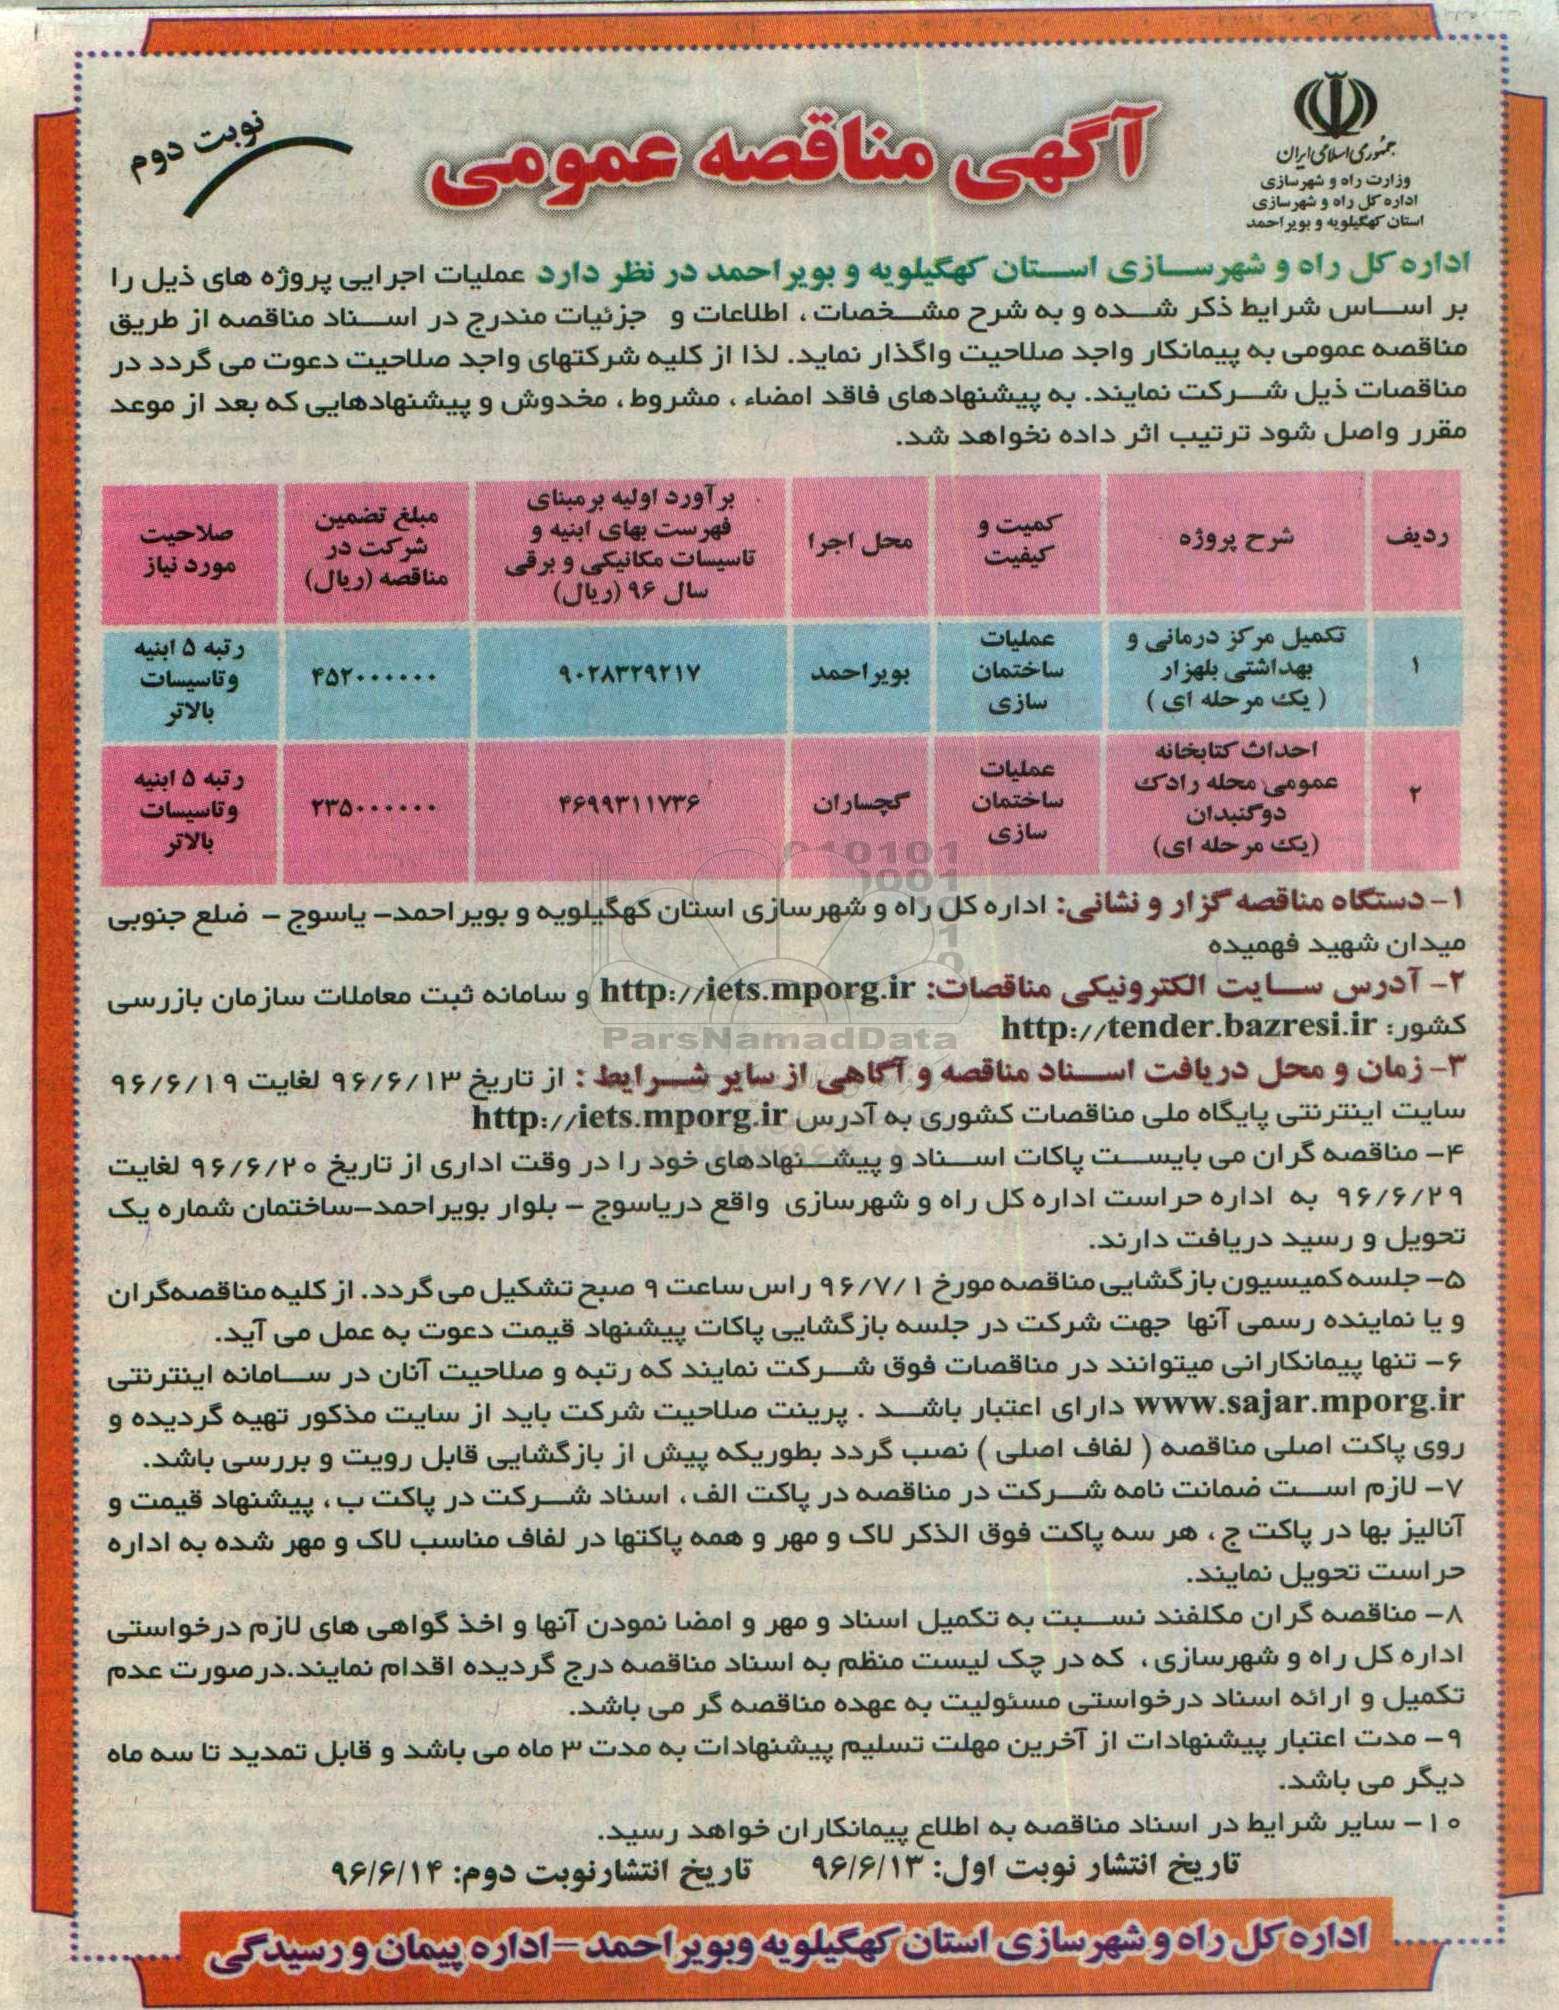 جمهوری اسلامی ایران
وزارت راه و شهرسازی
اداره کل راه و شهرسازی
استان کهگیلویه و بویراحمد
آگهی مناقصه عمومی
نوبت دوم
اداره کل راه و شهرسازی استان کهگیلویه و بویراحمد در نظر دارد عملیات اجرایی پروژه های ذیل را
بر اساس شرایط ذکر شده و به شرح مشخصات، اطلاعات و جزئیات مندرج در اسناد مناقصه از طریق
مناقصه عمومی به پیمانکار واجد صلاحیت واگذار نماید. لذا از کلیه شرکتهای واجد صلاحیت دعوت می گردد در
مناقصات ذیل شرکت نمایند. به پیشنهادهای فاقد امضاء ، مشروط، مخدوش و پیشنهادهایی که بعد از موعد
مقرر واصل شود ترتیب اثر داده نخواهد شد.
ردیف
شرح پروژه
کمیت و
کیفیت
محل اجرا
برآورد اولیه برمبنای
فهرست بهای ابنیه و
تاسیسات مکانیکی و برقی
سال ۹۶ (ریال)
مبلغ تضمین
شرکت در
مناقصه (ریال)
صلاحیت
مورد نیاز
۱
تکمیل مرکز درمانی و
بهداشتی بلهزار
( یک مرحله ای )
عملیات
ساختمان
سازی
بویراحمد
۹۰۲۸۳۲۹۲۱۷
۴۵۲۰۰۰۰۰۰
رتبه ۵ ابنیه
وتاسیسات
بالاتر
۲
احداث کتابخانه
عمومی محله رادک
دوگنبدان
(یک مرحله ای)
عملیات
ساختمان
سازی
گچساران
۴۶۹۹۳۱۱۷۳۶
۲۳۵۰۰۰۰۰۰
رتبه ۵ ابنیه
وتاسیسات
بالاتر
۱- دستگاه مناقصه گزار و نشانی: اداره کل راه و شهرسازی استان کهگیلویه و بویراحمد- یاسوج - ضلع جنوبی
میدان شهید فهمیده
۲- آدرس سایت الکترونیکی مناقصات: http://iets.mporg.ir و سامانه ثبت معاملات سازمان بازرسی
کشور: http://tender.bazresi.ir
ParsNamadData
۳- زمان و محل دریافت اسناد مناقصه و آگاهی از سایر شرایط : از تاریخ ۹۶/۶/۱۳ لغایت ۹۶/۶/۱۹
سایت اینترنتی پایگاه ملی مناقصات کشوری به آدرس http://iets.mporg.ir
۴- مناقصه گران می بایست پاکات اسناد و پیشنهادهای خود را در وقت اداری از تاریخ ۹۶/۶/۲۰ لغایت
۹۶/۶/۲۹ به اداره حراست اداره کل راه و شهرسازی واقع دریاسوج - بلوار بویراحمد-ساختمان شماره یک
تحویل و رسید دریافت دارند.
۵- جلسه کمیسیون بازگشایی مناقصه مورخ ۹۶/۷/۱ راس ساعت ۹ صبح تشکیل می گردد. از کلیه مناقصه‌گران
و یا نماینده رسمی آنها جهت شرکت در جلسه بازگشایی پاکات پیشنهاد قیمت دعوت به عمل می آید.
۶- تنها پیمانکارانی میتوانند در مناقصات فوق شرکت نمایند که رتبه و صلاحیت آنان در سامانه اینترنتی
www.sajar.mporg.ir دارای اعتبار باشد . پرینت صلاحیت شرکت باید از سایت مذکور تهیه گردیده و
روی پاکت اصلی مناقصه ( لفاف اصلی ) نصب گردد بطوریکه پیش از بازگشایی قابل رویت و بررسی باشد.
۷- لازم است ضمانت نامه شرکت در مناقصه در پاکت الف، اسناد شرکت در پاکت ب، پیشنهاد قیمت و
آنالیز بها در پاکت ج، هر سه پاکت فوق الذکر لاک و مهر و همه پاکتها در لفاف مناسب لاک و مهر شده به اداره
حراست تحویل نمایند.
۸- مناقصه گران مکلفند نسبت به تکمیل اسناد و مهر و امضا نمودن آنها و اخذ گواهی های لازم درخواستی
اداره کل راه و شهرسازی، که در چک لیست منظم به اسناد مناقصه درج گردیده اقدام نمایند.درصورت عدم
تکمیل و ارائه اسناد درخواستی مسئولیت به عهده مناقصه گر می باشد.
۹- مدت اعتبار پیشنهادات از آخرین مهلت تسلیم پیشنهادات به مدت ۳ ماه می باشد و قابل تمدید تا سه ماه
دیگر می باشد.
۱۰- سایر شرایط در اسناد مناقصه به اطلاع پیمانکاران خواهد رسید.
تاریخ انتشار نوبت اول: ۹۶/۶/۱۳ تاریخ انتشارنوبت دوم: ۹۶/۶/۱۴
اداره کل راه و شهرسازی استان کهگیلویه وبویراحمد -اداره پیمان و رسیدگی